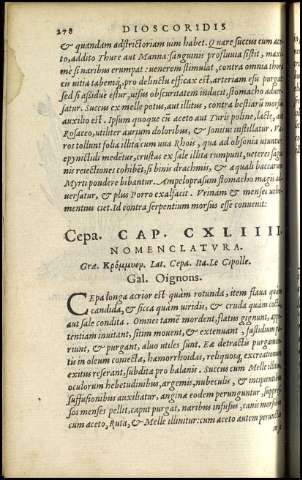 278 DIOSCORIDIS
& quandam adstrictoriam uim habet. Quare succus cum aceto
to, addito Thure aut Manna: sanguinis profluuia sistit, maxi
me si naribus erumpat: uenerem stimulat, contra omnia tho
cis uitia tabemq́; pro delinctu efficax est, arteriam esu purgat
sed si assiduè estur, uisus obscuritatem inducit, stomacho aduer
satur. Succus ex melle potus, aut illitus, contra bestiarũ morsus
auxilio est. Ipsum quoque cũ aceto aut Turis poline, lacte, aut
Rosaceo, utiliter aurium doloribus, & sonitui instillatur. Va
ros tollunt folia illita cum una Rhois, qua ad obsonia utuntur
epynictidi medetur, crustas ex sale illita rumpunt, ueteres sangui
nis reiectiones cohibẽt, si binis drachmis, & æquali baccarum
Myrti pondere bibantur. Ampeloprasum stomacho magis ad
uersatur, & plus Porro exalfacit. Vrinam & menses uehe
mentius ciet. Id contra serpentium morsus esse conuenit.
Cepa. CAP. CXLIIII.
NOMENCLATVRA.
Græ. Κρόμμυον. Lat. Cepa. Ita. Le Cipolle.
Gal. Oignons.
CEpa longa acrior est quàm rotunda, item flaua quàm
candida, & sicca quàm uiridis, & cruda quàm cocta,
aut sale condita. Omnes tamẽ mordent, flatus gignunt, appe
tentiam inuitant, sitim mouent, & extenuant, fastidium
riunt, & purgant, aluo utiles sunt. Ea detractis purgamen
tis in oleum coniecta, hæmorrhoidas, reliquosq́; excreationum
exitus reserant, subditæ pro balanis. Succus cum Melle illitus
oculorum hebetudinibus, argemis, nubeculis, & incipientibus
suffusionibus auxiliatur, anginæ eodem perunguntur,
sos menses pellit, caput purgat, naribus infusus, canis morsibus
cum aceto, Ruta, & Melle illinitur: cum aceto autem peruncta